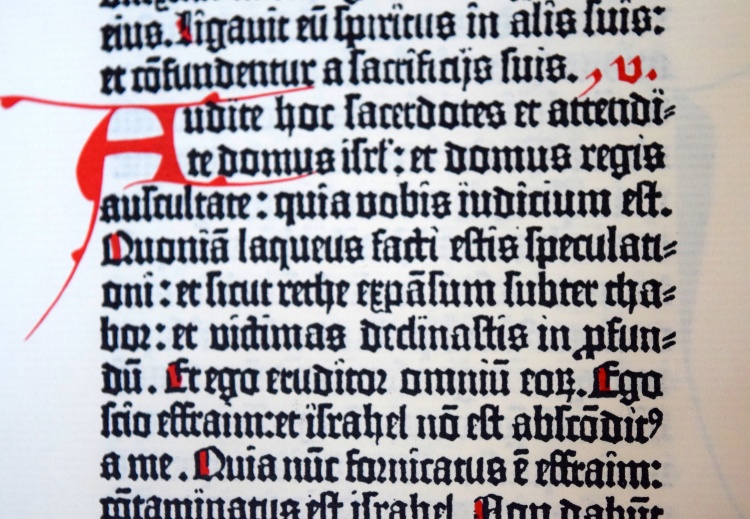 eius. Ligauit eū spiritus in alis suis:
et cōfundentur a sacrificijs suis. v.
Audite hoc sacerdotes et attendi⸗
te domus isrł: et domus regis
auscultate: quia vobis iudicium est.
Quoniā laqueus facti estis speculati⸗
oni: et sicut rethe expāsum subter tha⸗
bor: et victimas declinastis in ꝓfun⸗
dū. Et ego eruditor omniū eoꝝ. Ego
scio effraim: et israhel nō est abscōditꝰ
a me. Quia nūc fornicatus ē effraim:
cōtaminatus est israhel. Non dabūt